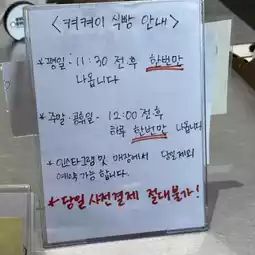 <켜켜이 식빵 안내>
*평일: 11:30 전후 한번만
나옵니다
*주말·공휴일 - 12:00 전후
하루 한번만 나옵니다
*인스타그램 및 매장에서 당일제외
예약가능합니다.
*당일 사전결제 절대불가!